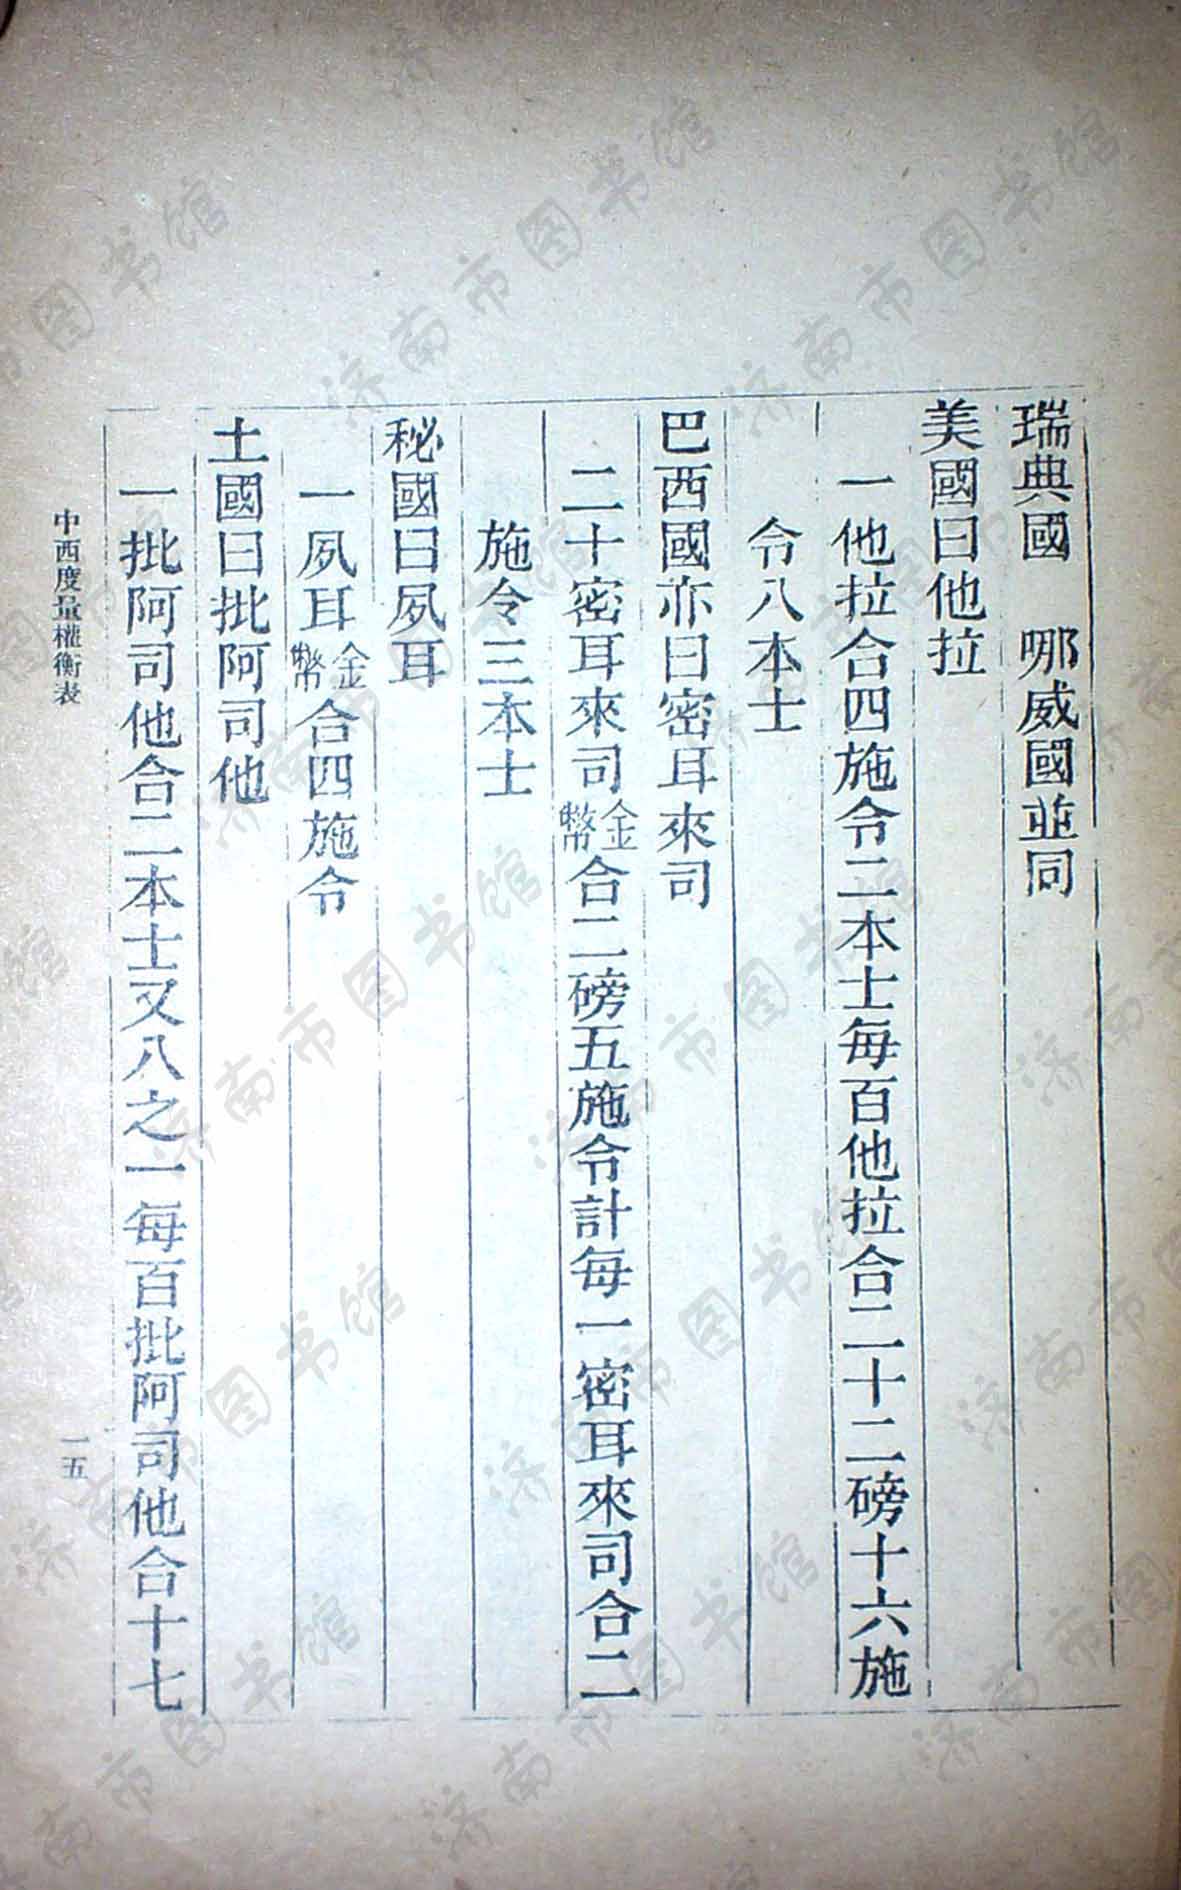 瑞典國　哪威國並同
美國曰他拉
一他拉合四施令二本士每百他拉合二十二磅十六施
令八本士
巴西國亦曰密耳來司
二十密耳來司金幣合二磅五施令計每一密耳來司合二
施令三本士
秘國曰夙耳
一夙耳金幣合四施令
土國曰批阿司他
一批阿司他合二本士又八之一每百批阿司他合十七
中西度量權衡表
一五
济南市图书馆